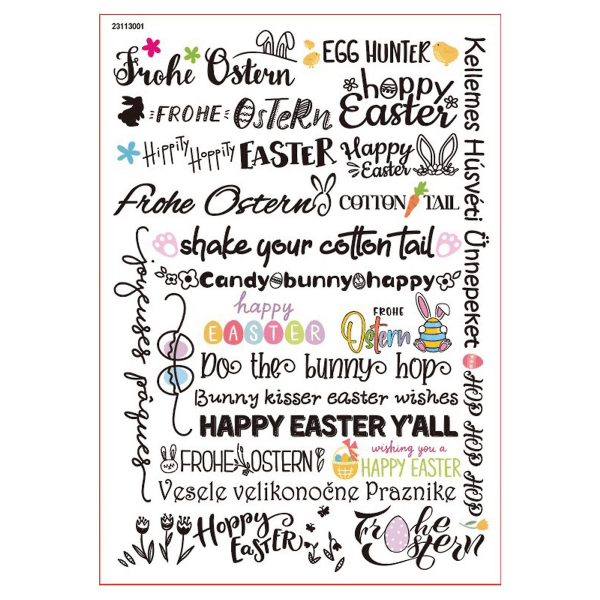 23113001
Frohe Ostern
EGG HUNTER
happy
Easter
FROHE OSTERN
Hippity Hoppity EASTER
Happy
Easter
Frohe Ostern
COTTON TAIL
shake your cotton tail
Candy bunny happy
happy
EASTER
FROHE
Ostern
Do the bunny hop
Bunny kisser easter wishes
HAPPY EASTER Y'ALL
FROHE OSTERN
wishing you a
HAPPY EASTER
Vesele velikonočne Praznike
Hoppy
EASTER
Frohe
Ostern
joyeuses pâques
Kellemes Húsvéti Ünnepeket
HOP HOP HOP